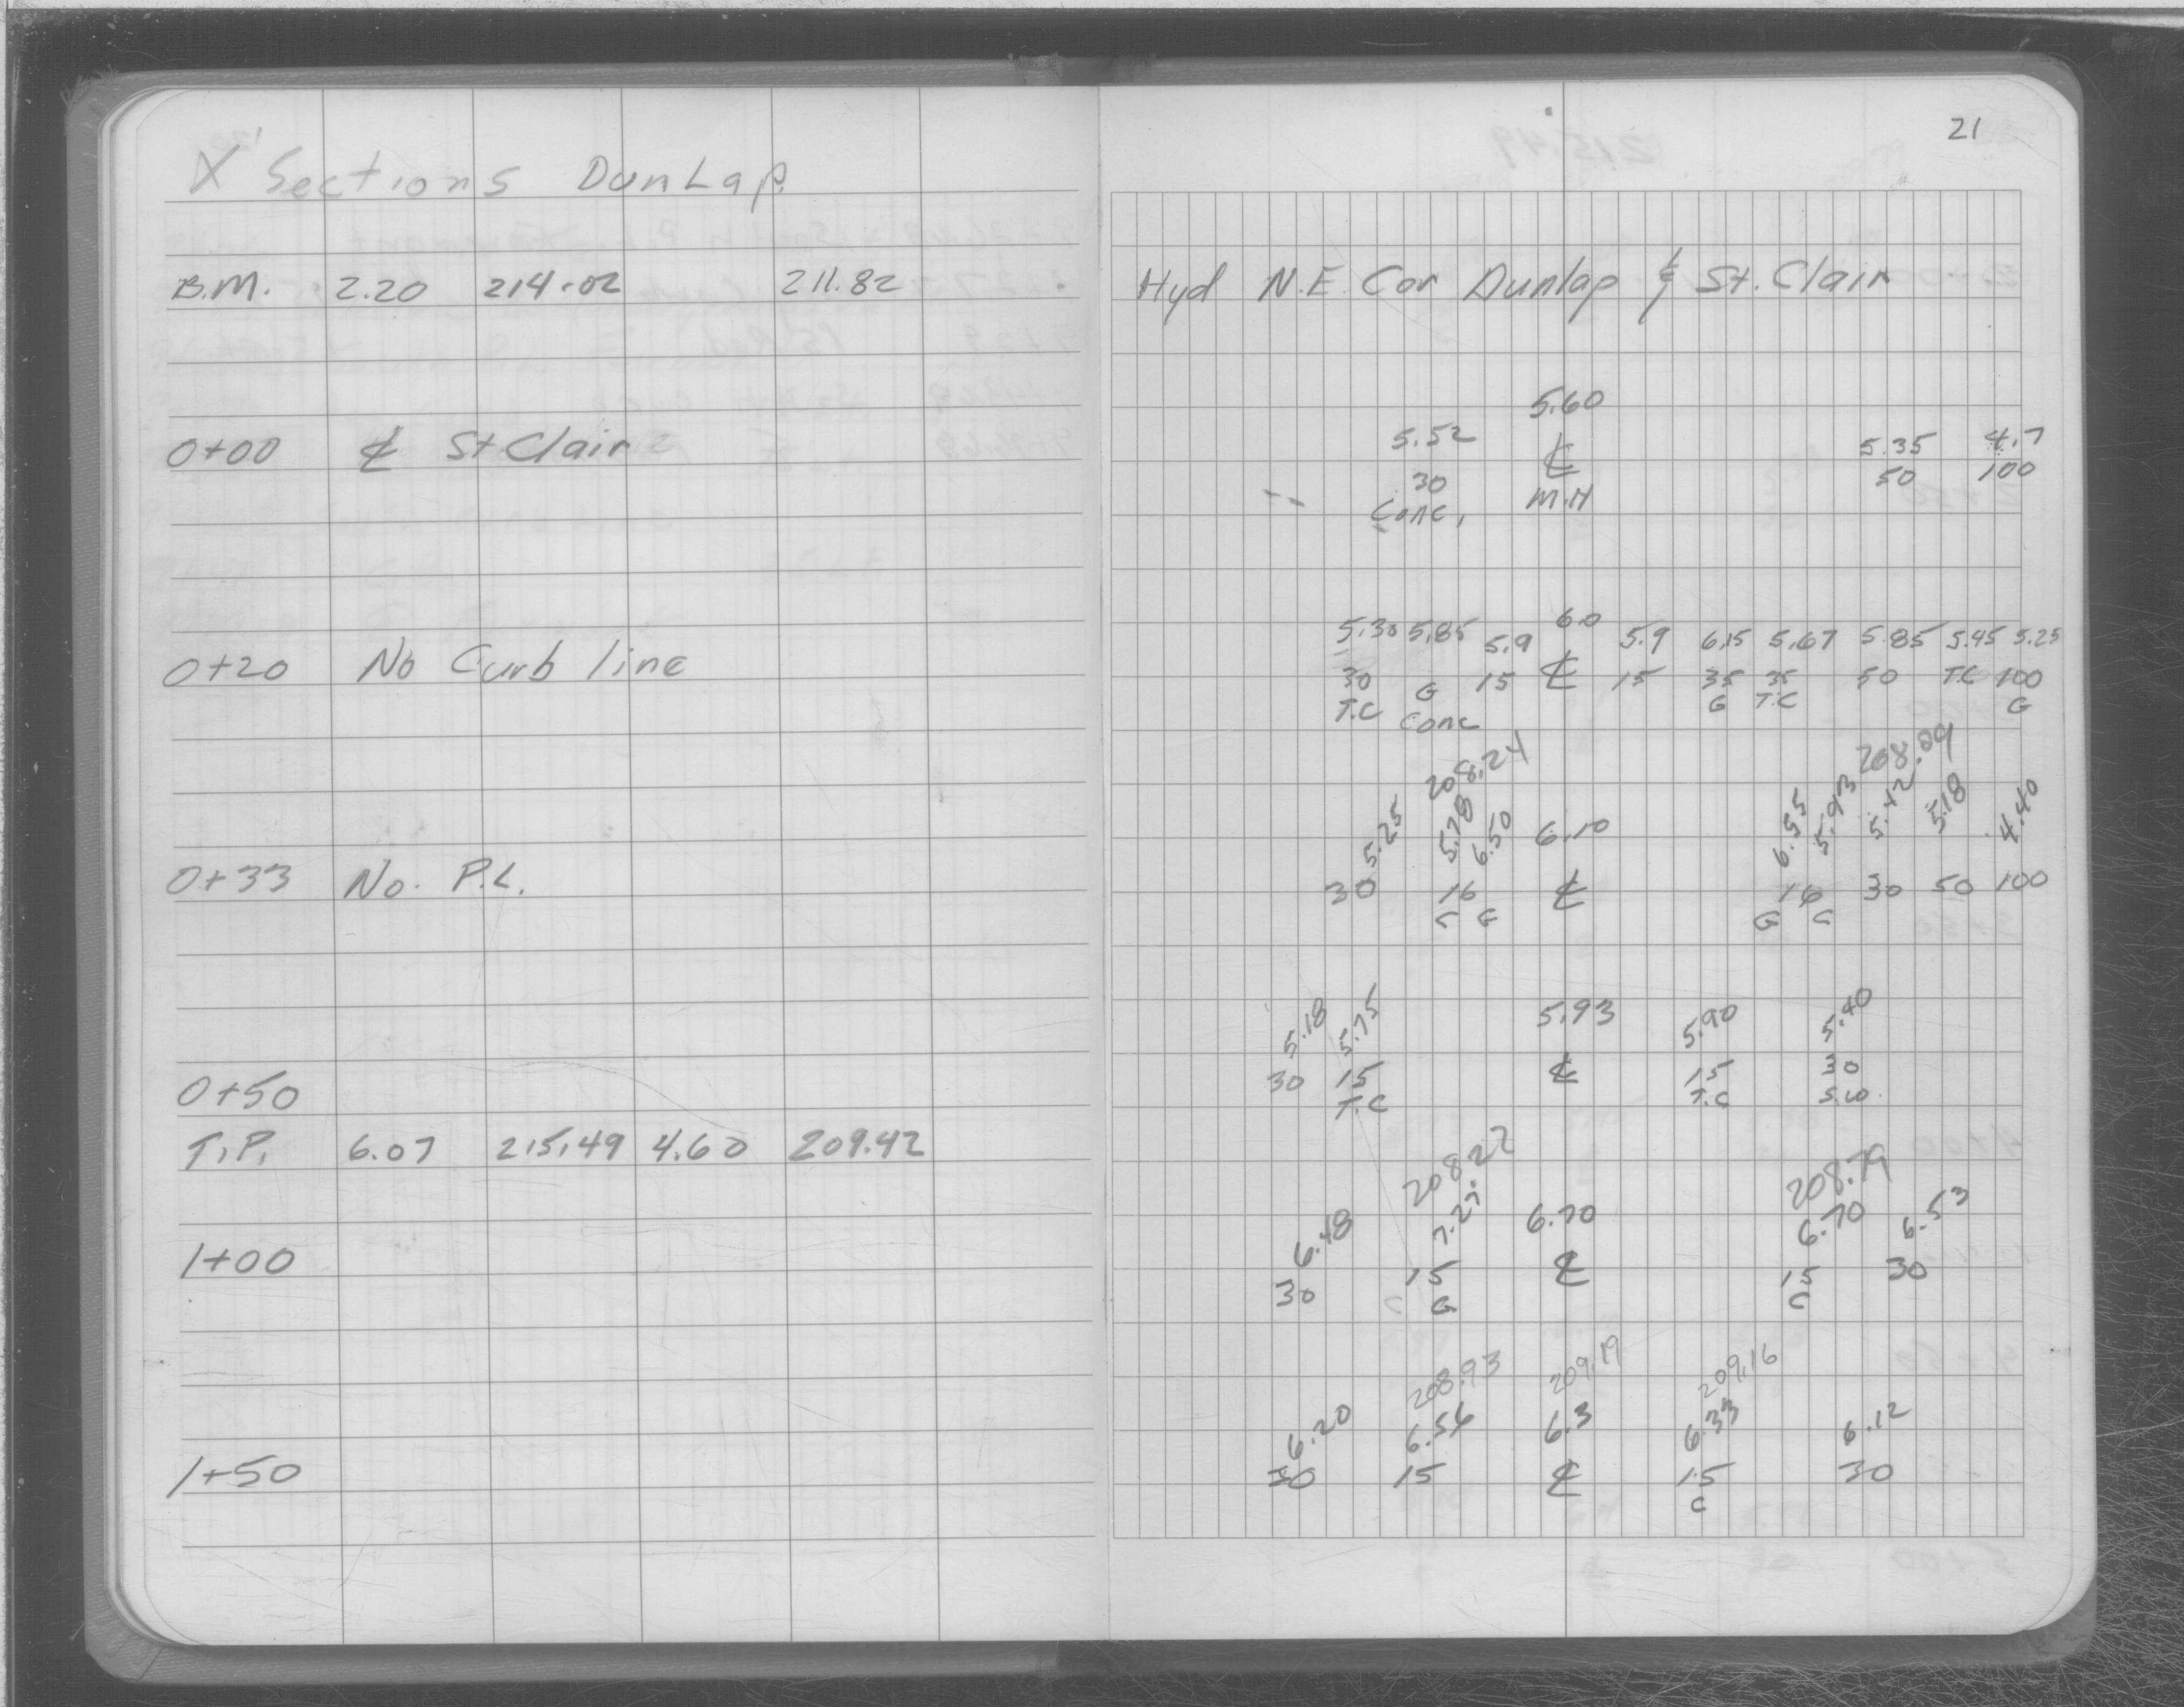 21
X Sections DunLap.
B.M. 2.20 214.02 211.82 Hyd N.E. Cor Dunlap & St. Clair
5.60
5.52 5.35 4.7
0+00 ℄ St Clair ℄
30 50 100
Conc, M.H
6.0
5.30 5.85 5.9 5.9 6.15 5.67 5.85 5.45 5.25
0+20 No Curb line 30 G 15 ℄ 15 35 35 50 T.C 100
T.C Conc G T.C G
208.24 208.09
5.25 5.78 6.50 6.10 6.55 5.93 5.42 5.18 4.40
0+33 No. P.L. 30 16 ℄ 16 30 50 100
C G G C
5.18 5.75 5.93 5.90 5.40
0+50 30 15 ℄ 15 30
T.C T.C S.W.
T.P. 6.07 215.49 4.60 209.42
208.22 208.79
6.48 7.27 6.70 6.70 6.53
1+00 30 15 ℄ 15 30
C G C
208.93 209.19 209.16
6.20 6.56 6.3 6.33 6.12
1+50 30 15 ℄ 15 30
C